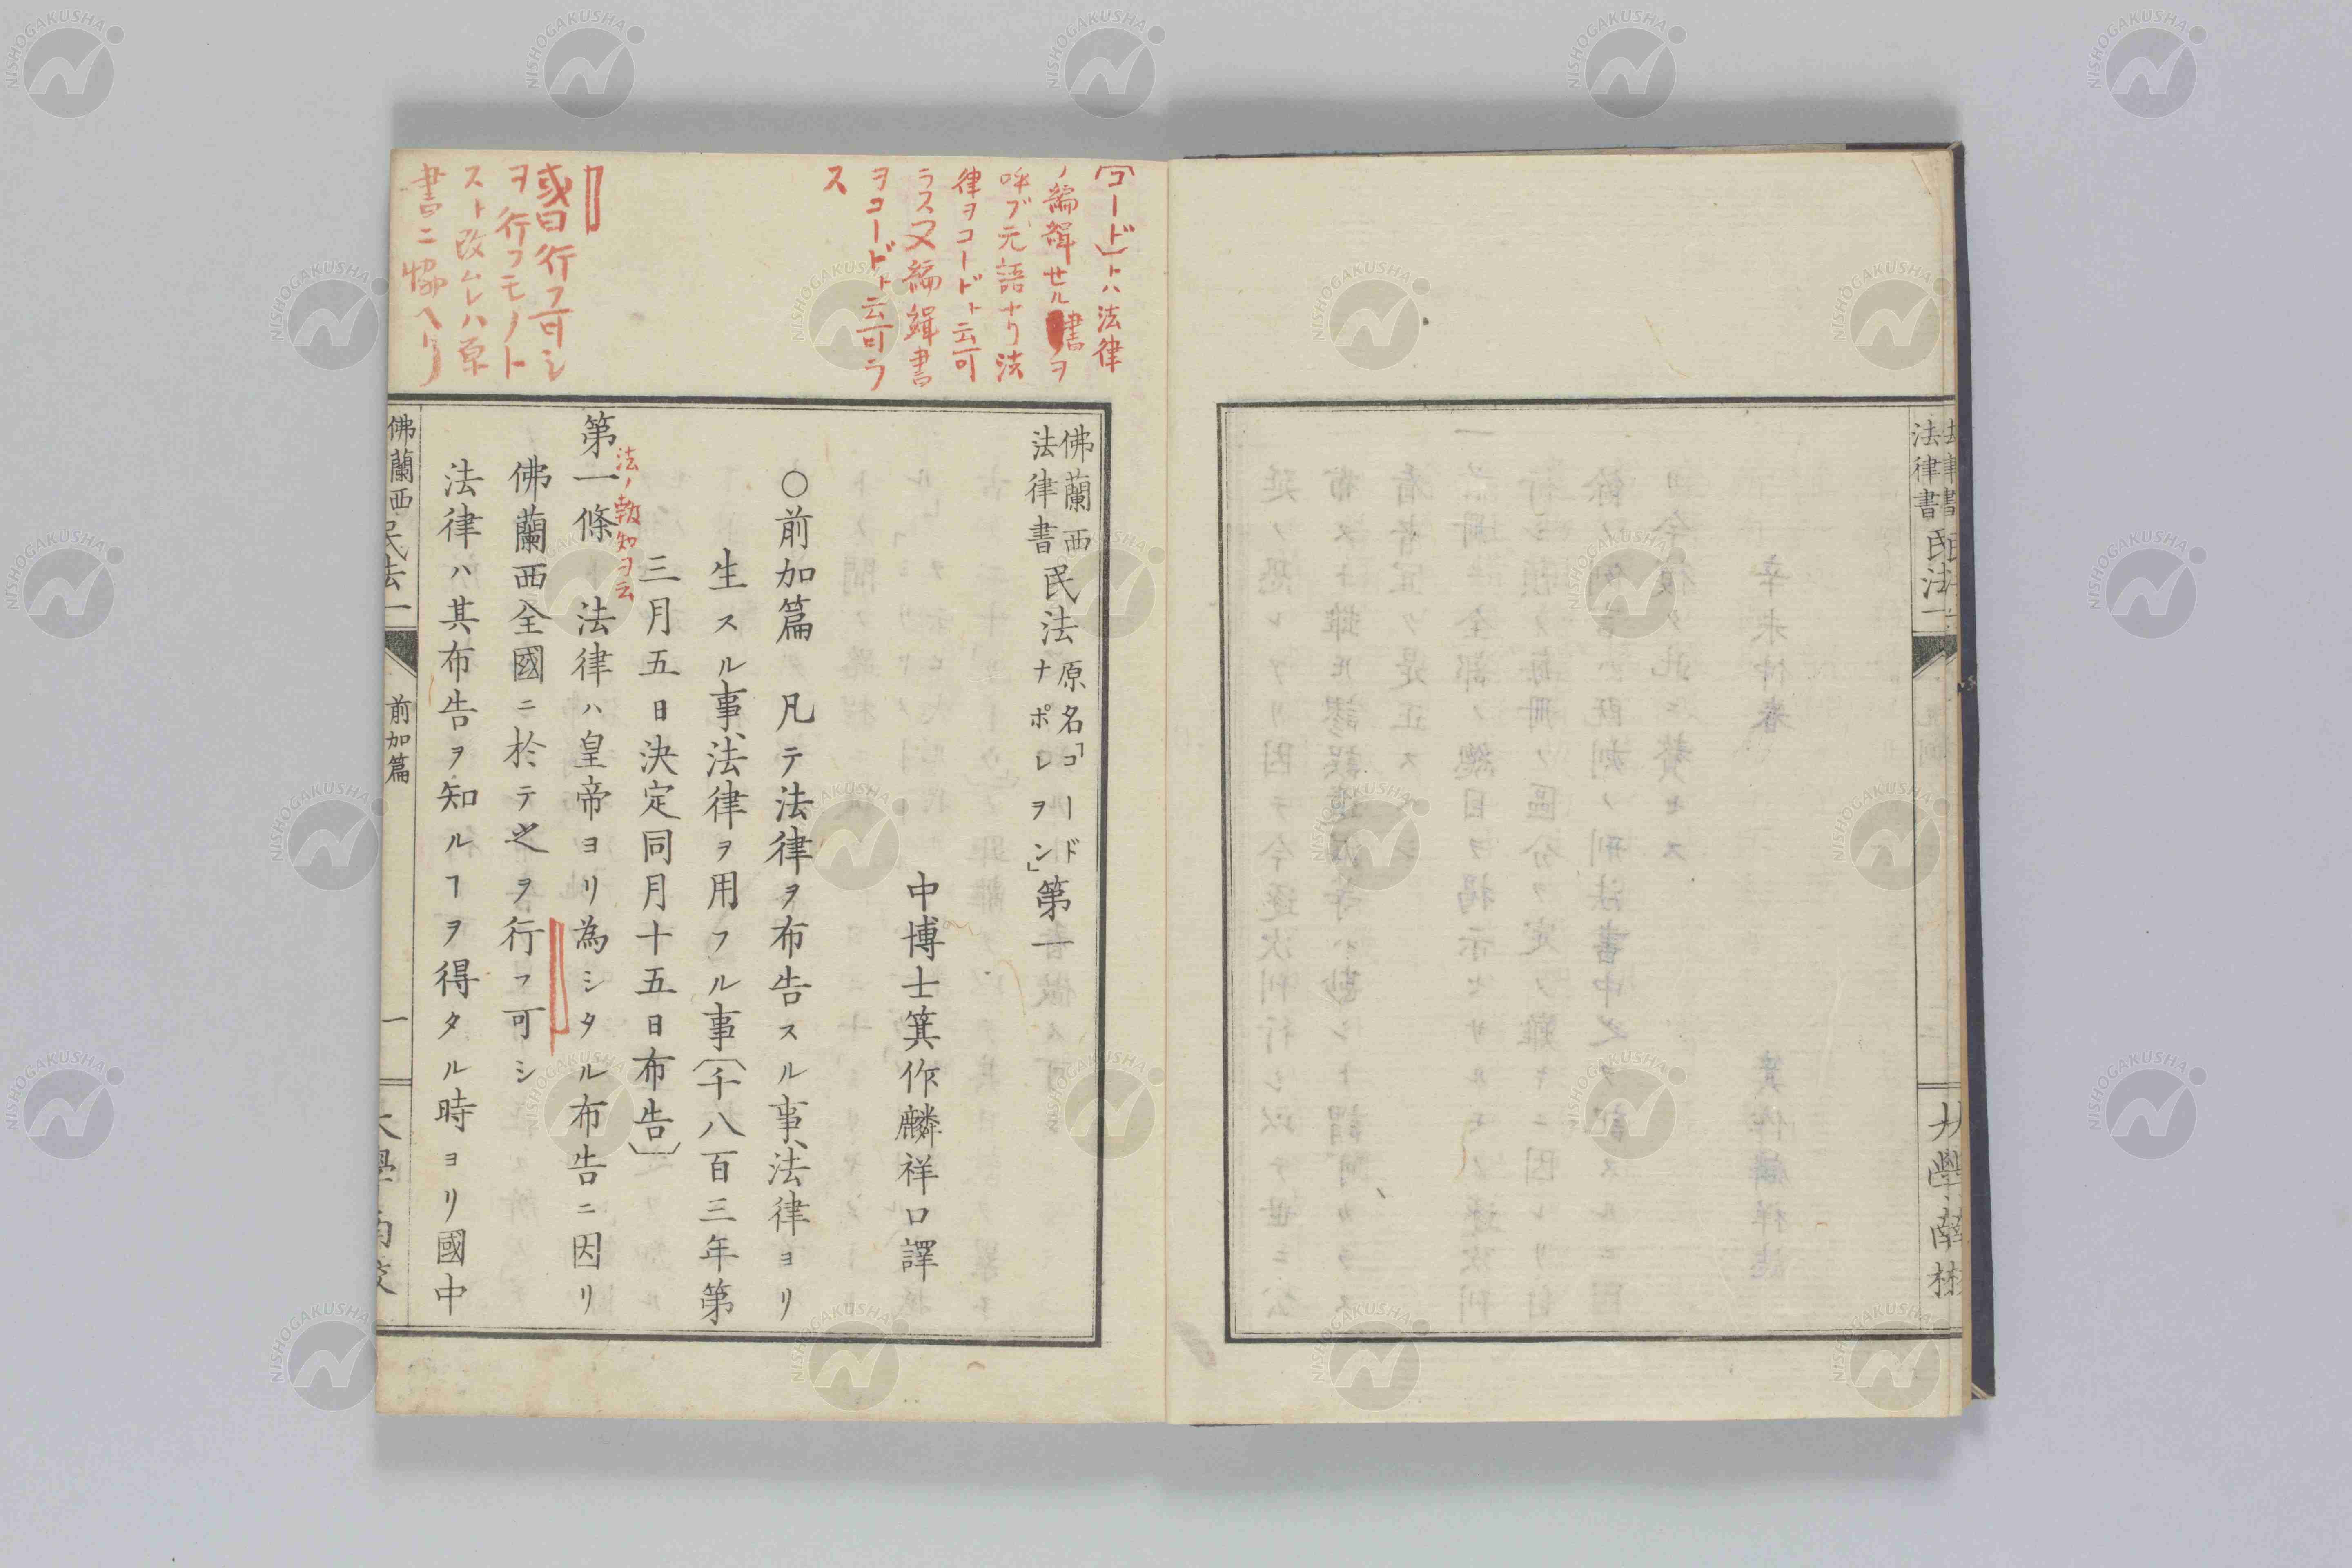 法律書
民法一
大學南校
「コード」トハ法律
ノ編緝セル書ヲ
呼ブ元語ナリ法
律ヲコードト云可
ラス又編緝書
ヲコードト云可ラ
ス
或曰行フ可シ
ヲ行フモノト
スト改ムレハ原
書ニ協ヘリ
佛蘭西
法律書
民法
原名「コード
ナポレヲン」
第一
中博士箕作麟祥口譯
○前加篇 凡テ法律ヲ布告スル事、法律ヨリ
生スル事、法律ヲ用フル事(千八百三年第
三月五日決定同月十五日布告)
法ノ報知ヲ云
第一條 法律ハ皇帝ヨリ為シタル布告ニ因リ
佛蘭西全國ニ於テ之ヲ行フ可シ
法律ハ其布告ヲ知ルヿヲ得タル時ヨリ國中
佛蘭西民法一
前加篇
一
大學南校
NISHOGAKUSHA